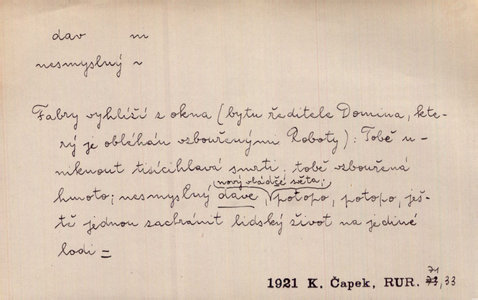 dav m
nesmyslný ~
Fabry vyhlíží z okna (bytu ředitele Domina, kte-
rý je obléhán vzbouřenými Roboty): Tobě u-
niknout tisícihlavá smrti, tobě vzbouřená
hmoto; nesmyslný dave,
nový vládče světa;
potopo, potopo, ješ-
tě jednou zachránit lidský život na jediné
lodi =
71
1921 K. Čapek, RUR. ,33